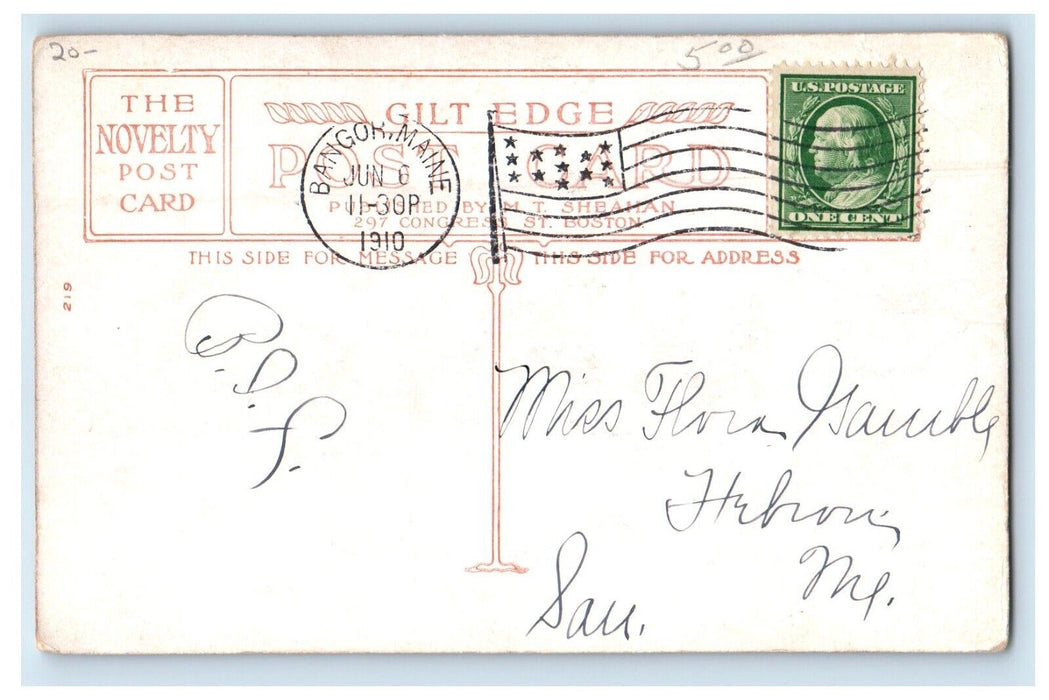 20-
5.00
THE
NOVELTY
POST
CARD
GILT EDGE
POST CARD
PUBLISHED BY M. T. SHEAHAN
297 CONGRESS ST. BOSTON
BANGOR, MAINE
JUN 6
11-30P
1910
U.S. POSTAGE
ONE CENT
THIS SIDE FOR MESSAGE
THIS SIDE FOR ADDRESS
219
Miss Flora Gamble
Hebron
Me.
San.